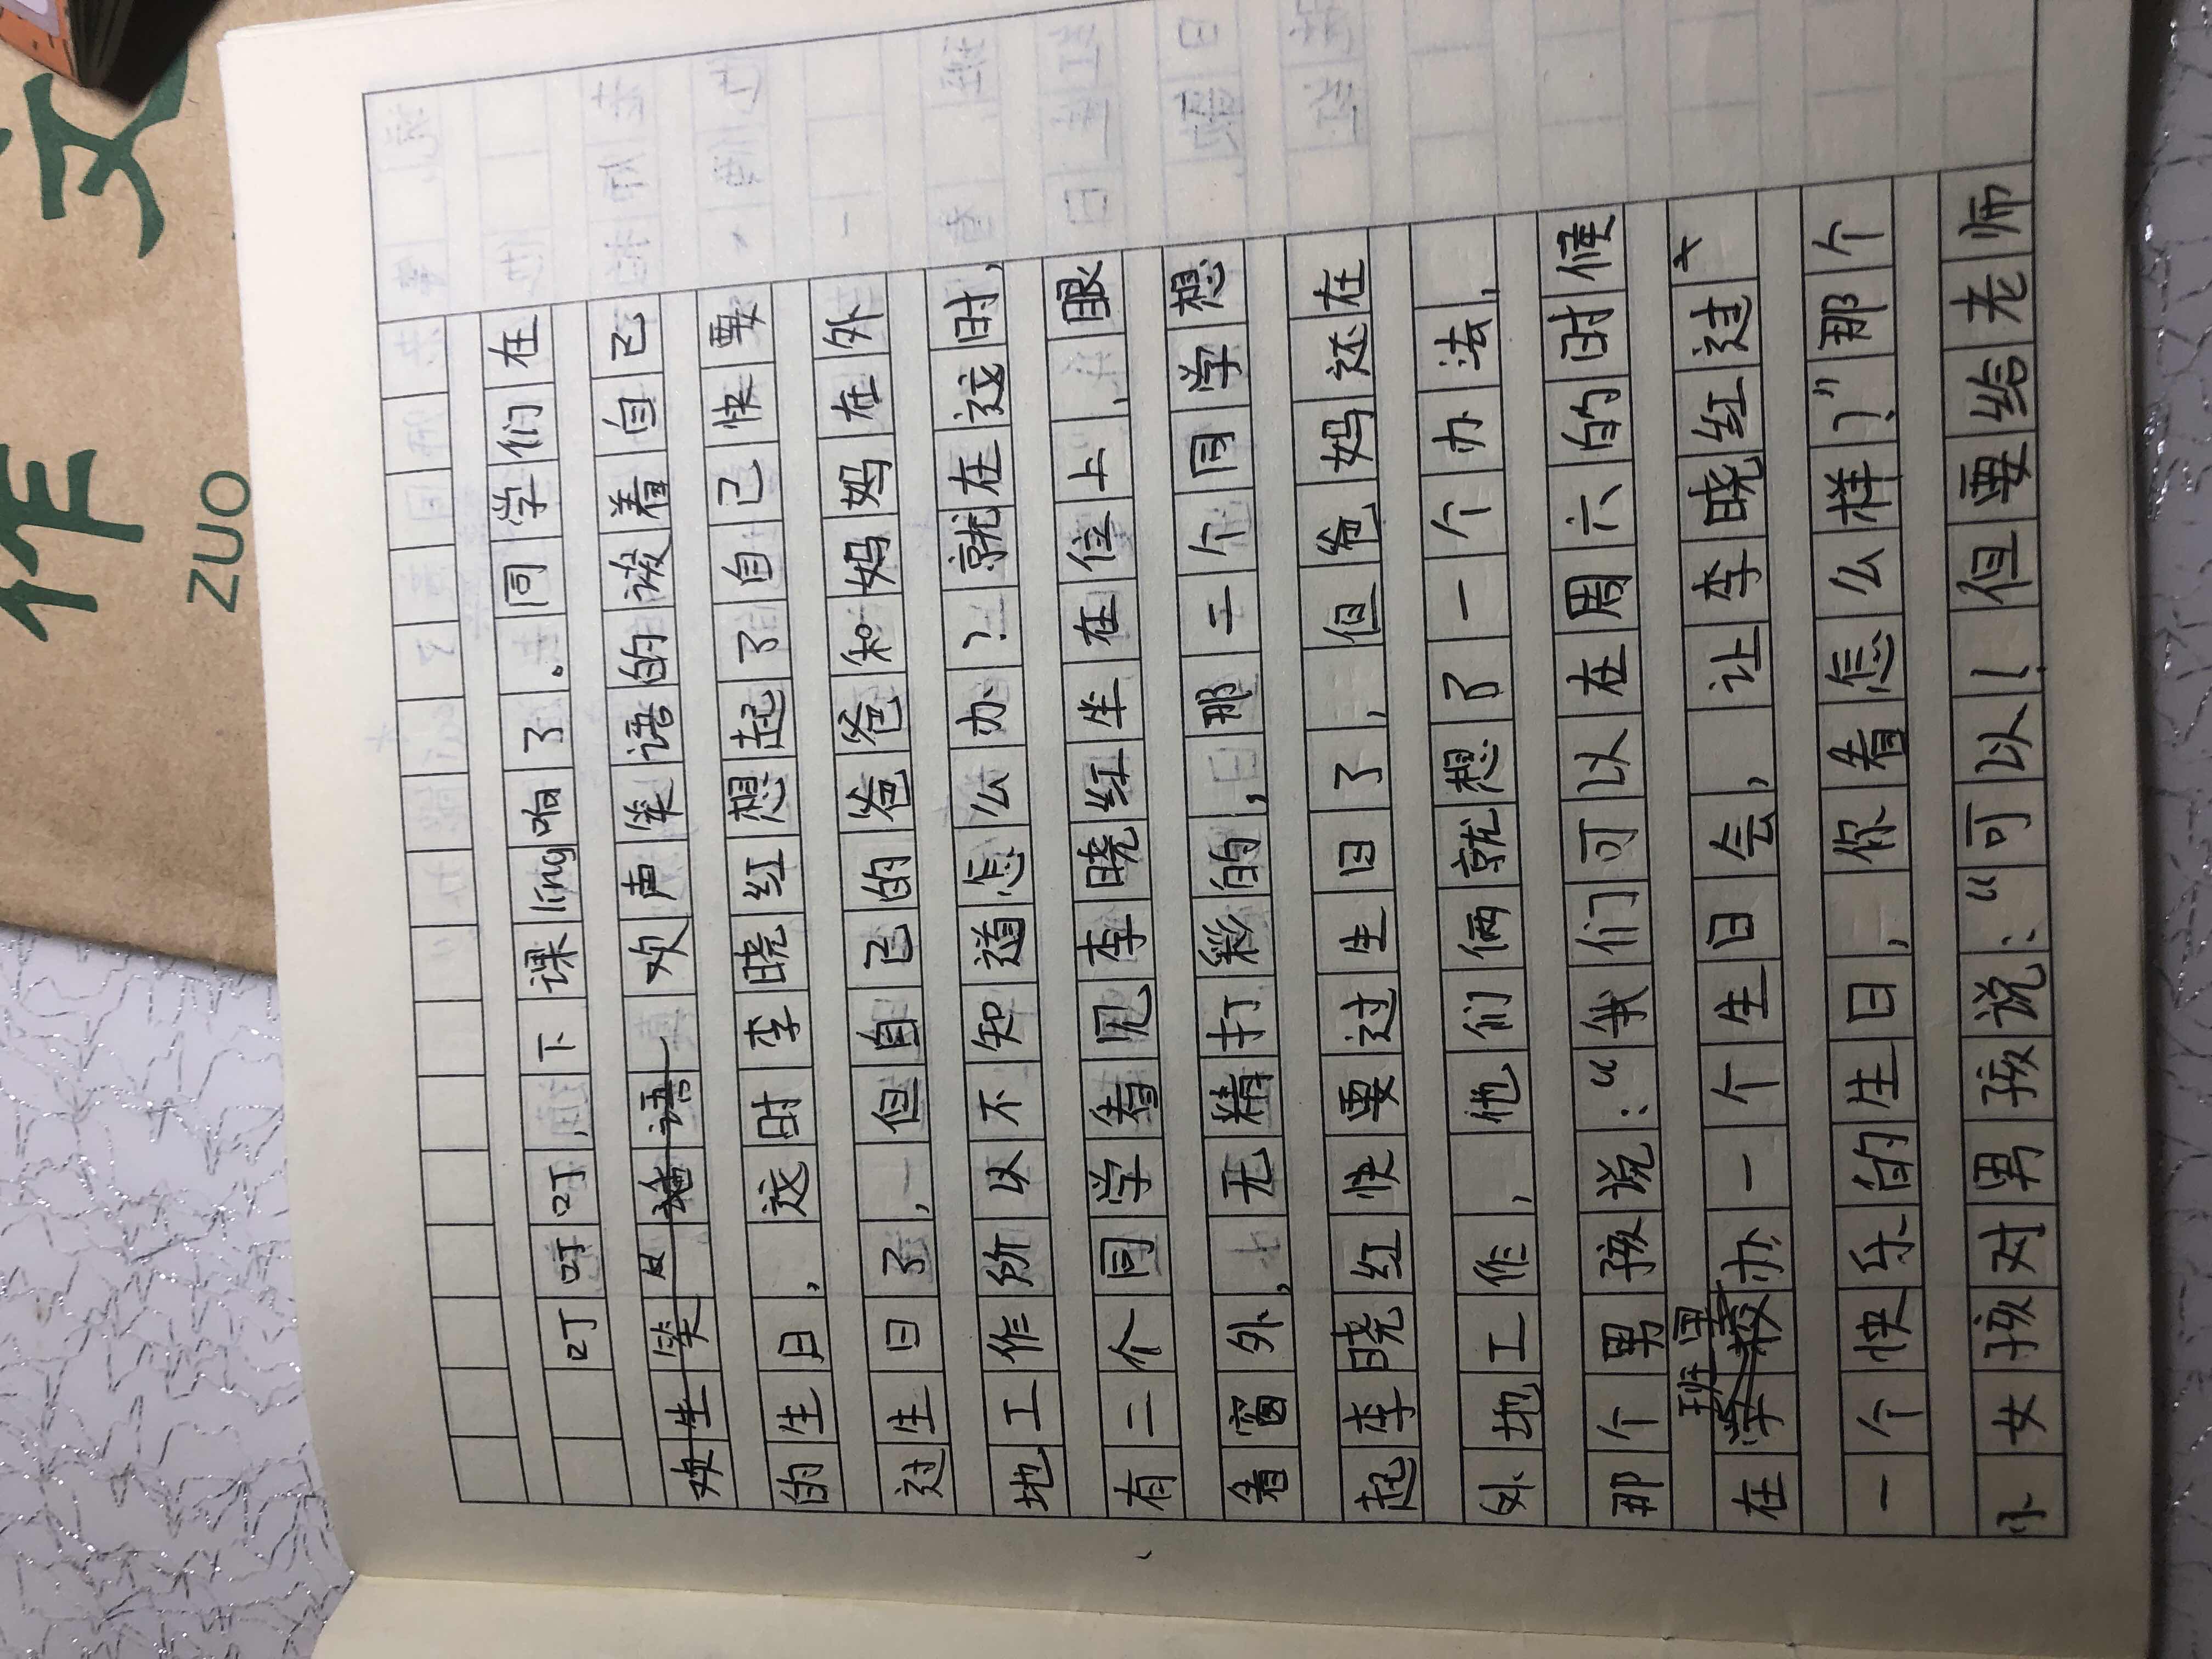 作文
ZUO
叮叮叮，下课ling响了。同学们在
欢声笑语的谈着自己
的生日，这时李晓红想起了自己快要
过生日了，但自己的爸爸和妈妈在外
地工作所以不知道怎么办？就在这时，
有二个同学看见李晓红坐在位上，眼
看窗外，无精打彩的，那二个同学想
起李晓红快要过生日了，但爸妈还在
外地工作，他们俩就想了一个办法，
那个男孩说：“我们可以在周六的时候
在班里办一个生日会，让李晓红过
一个快乐的生日，你看怎么样？”那个
小女孩对男孩说：“可以！但要给老师